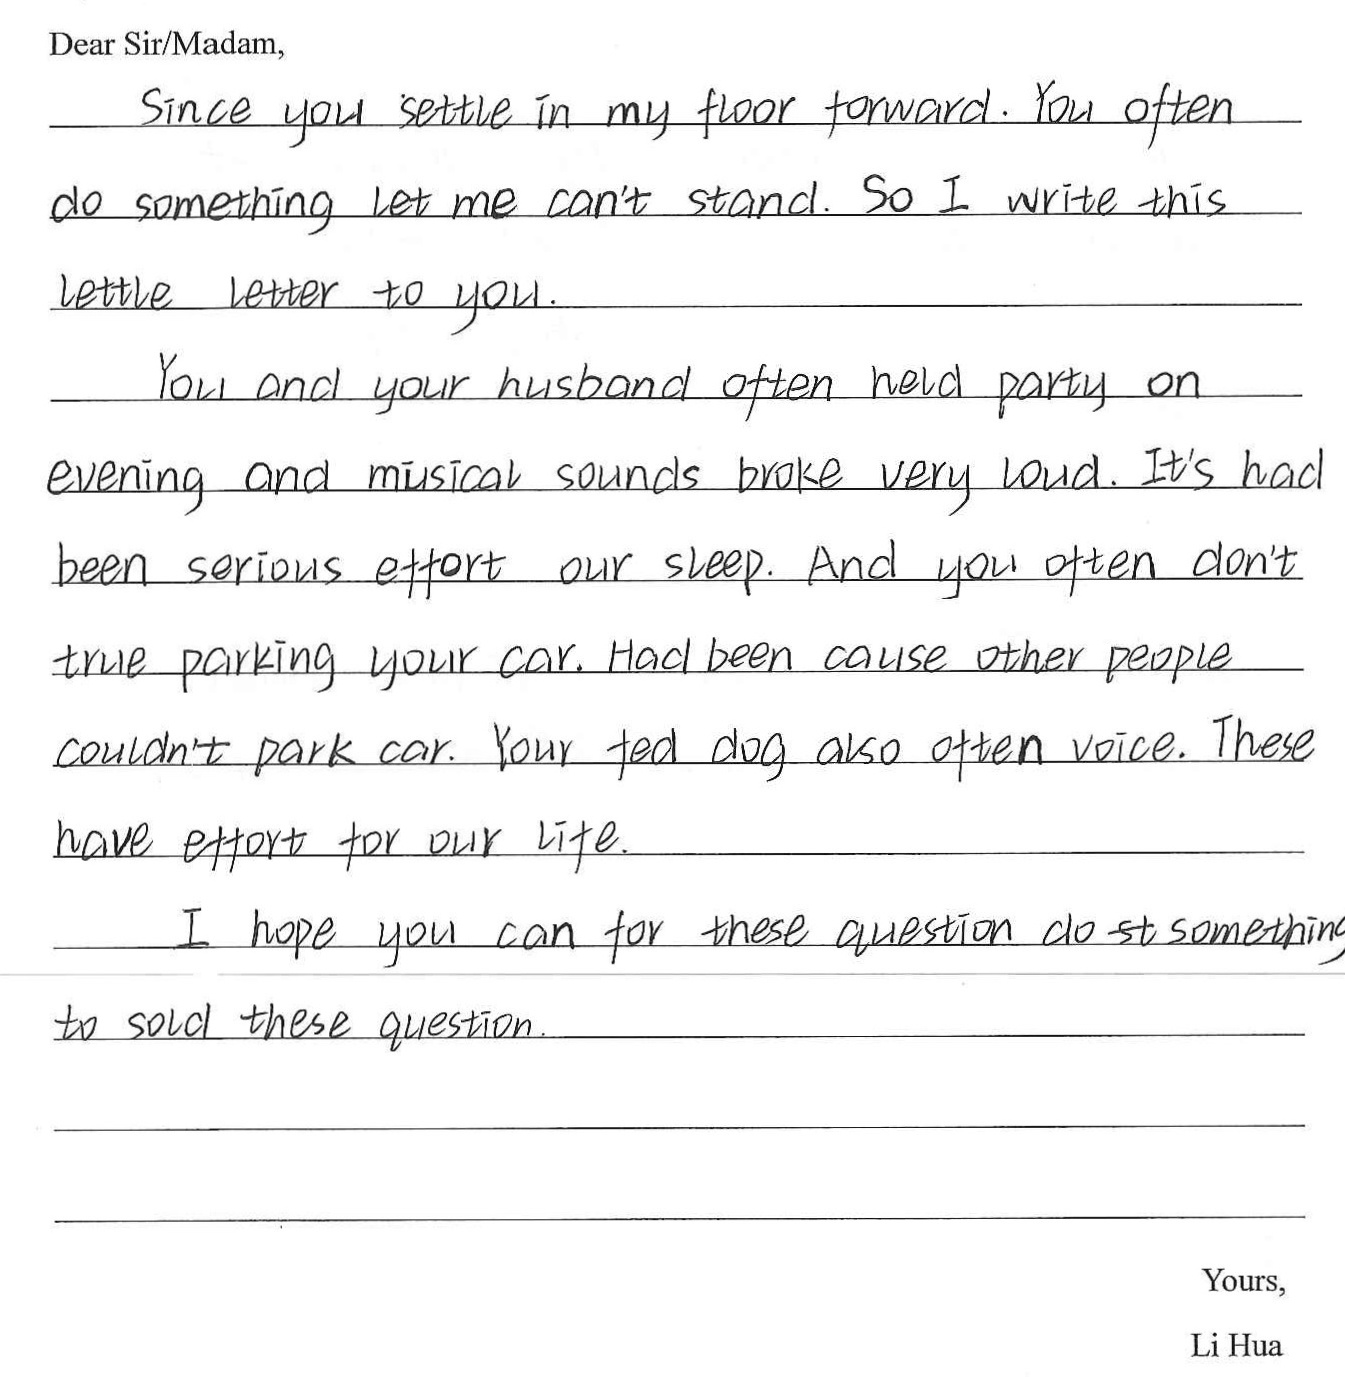 Dear Sir/Madam,
Since you settle in my floor forward. You often
do something let me can't stand. So I write this
lettle letter to you.
You and your husband often held party on
evening and musical sounds broke very loud. It's had
been serious effort our sleep. And you often don't
true parking your car. Had been cause other people
couldn't park car. Your fed dog also often voice. These
have effort for our life.
I hope you can for these question do st something
to sold these question.
Yours,
Li Hua